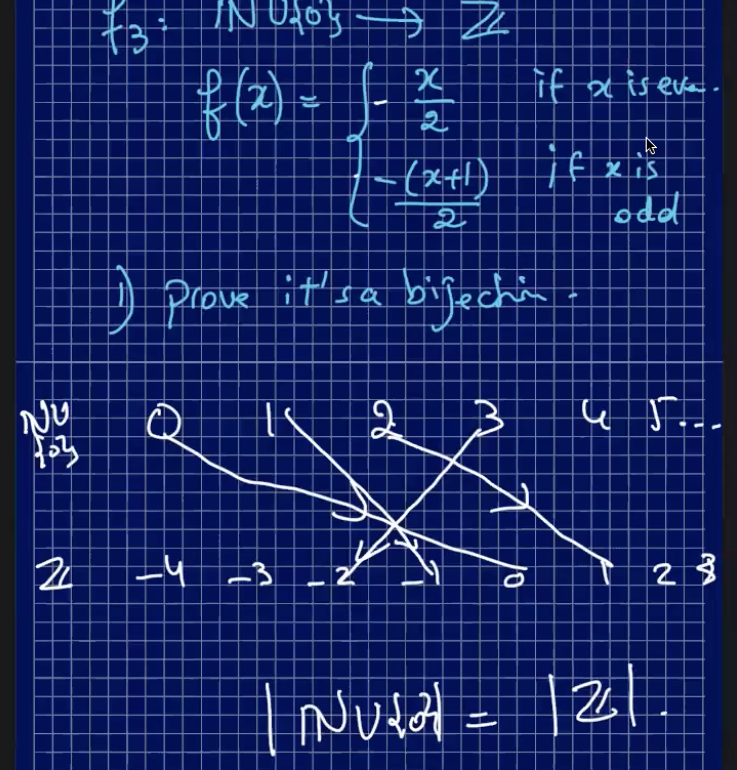 f₃: ℕ∪{0} → ℤ
f(x) = { - x/2 if x is even.
-(x+1)/2 if x is odd
1) Prove it's a bijection.
ℕ∪{0} 0 1 2 3 4 5...
ℤ -4 -3 -2 -1 0 1 2 3
|ℕ∪{0}| = |ℤ|.